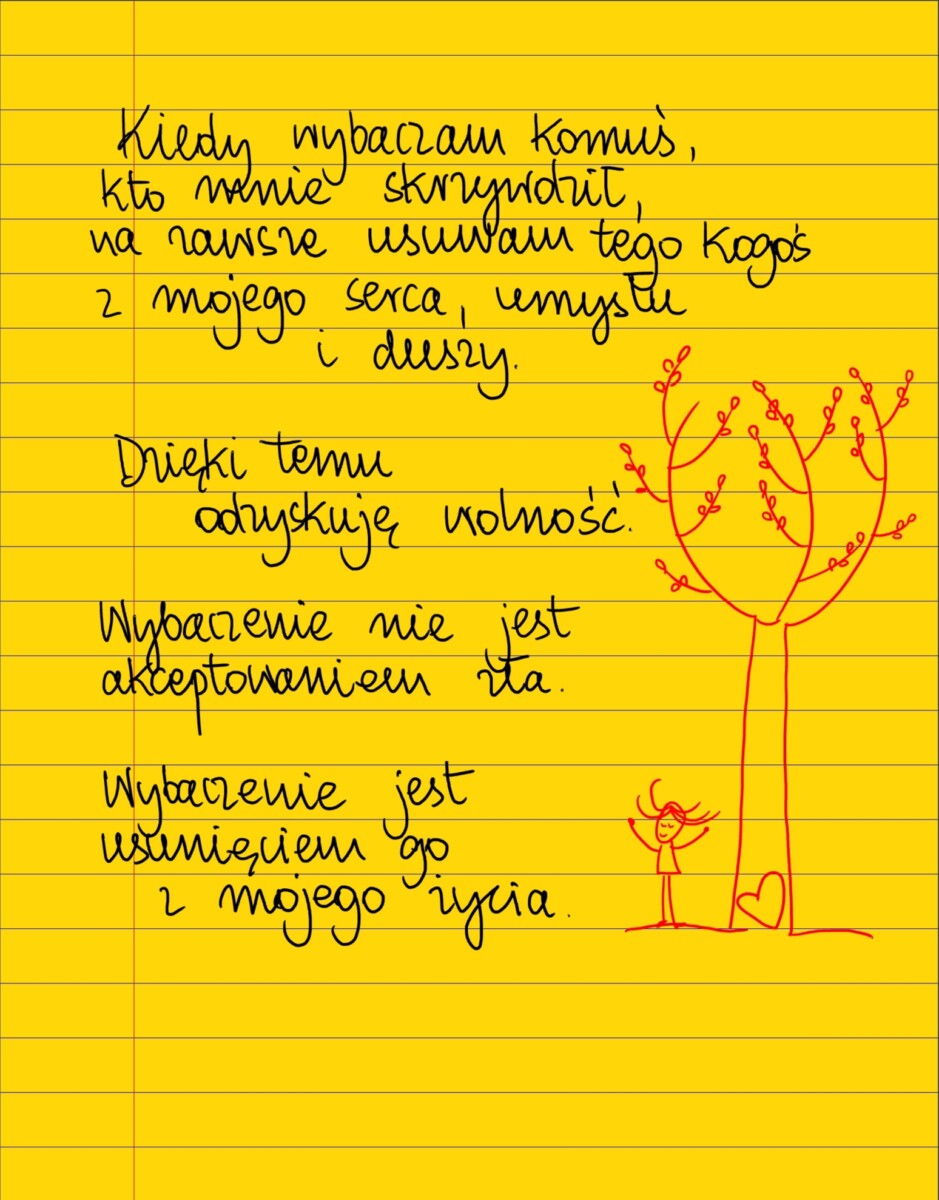 Kiedy wybaczam komuś,
kto mnie skrzywdził,
na zawsze usuwam tego kogoś
z mojego serca, umysłu
i duszy.
Dzięki temu
odzyskuję wolność.
Wybaczenie nie jest
akceptowaniem zła.
Wybaczenie jest
usunięciem go
z mojego życia.